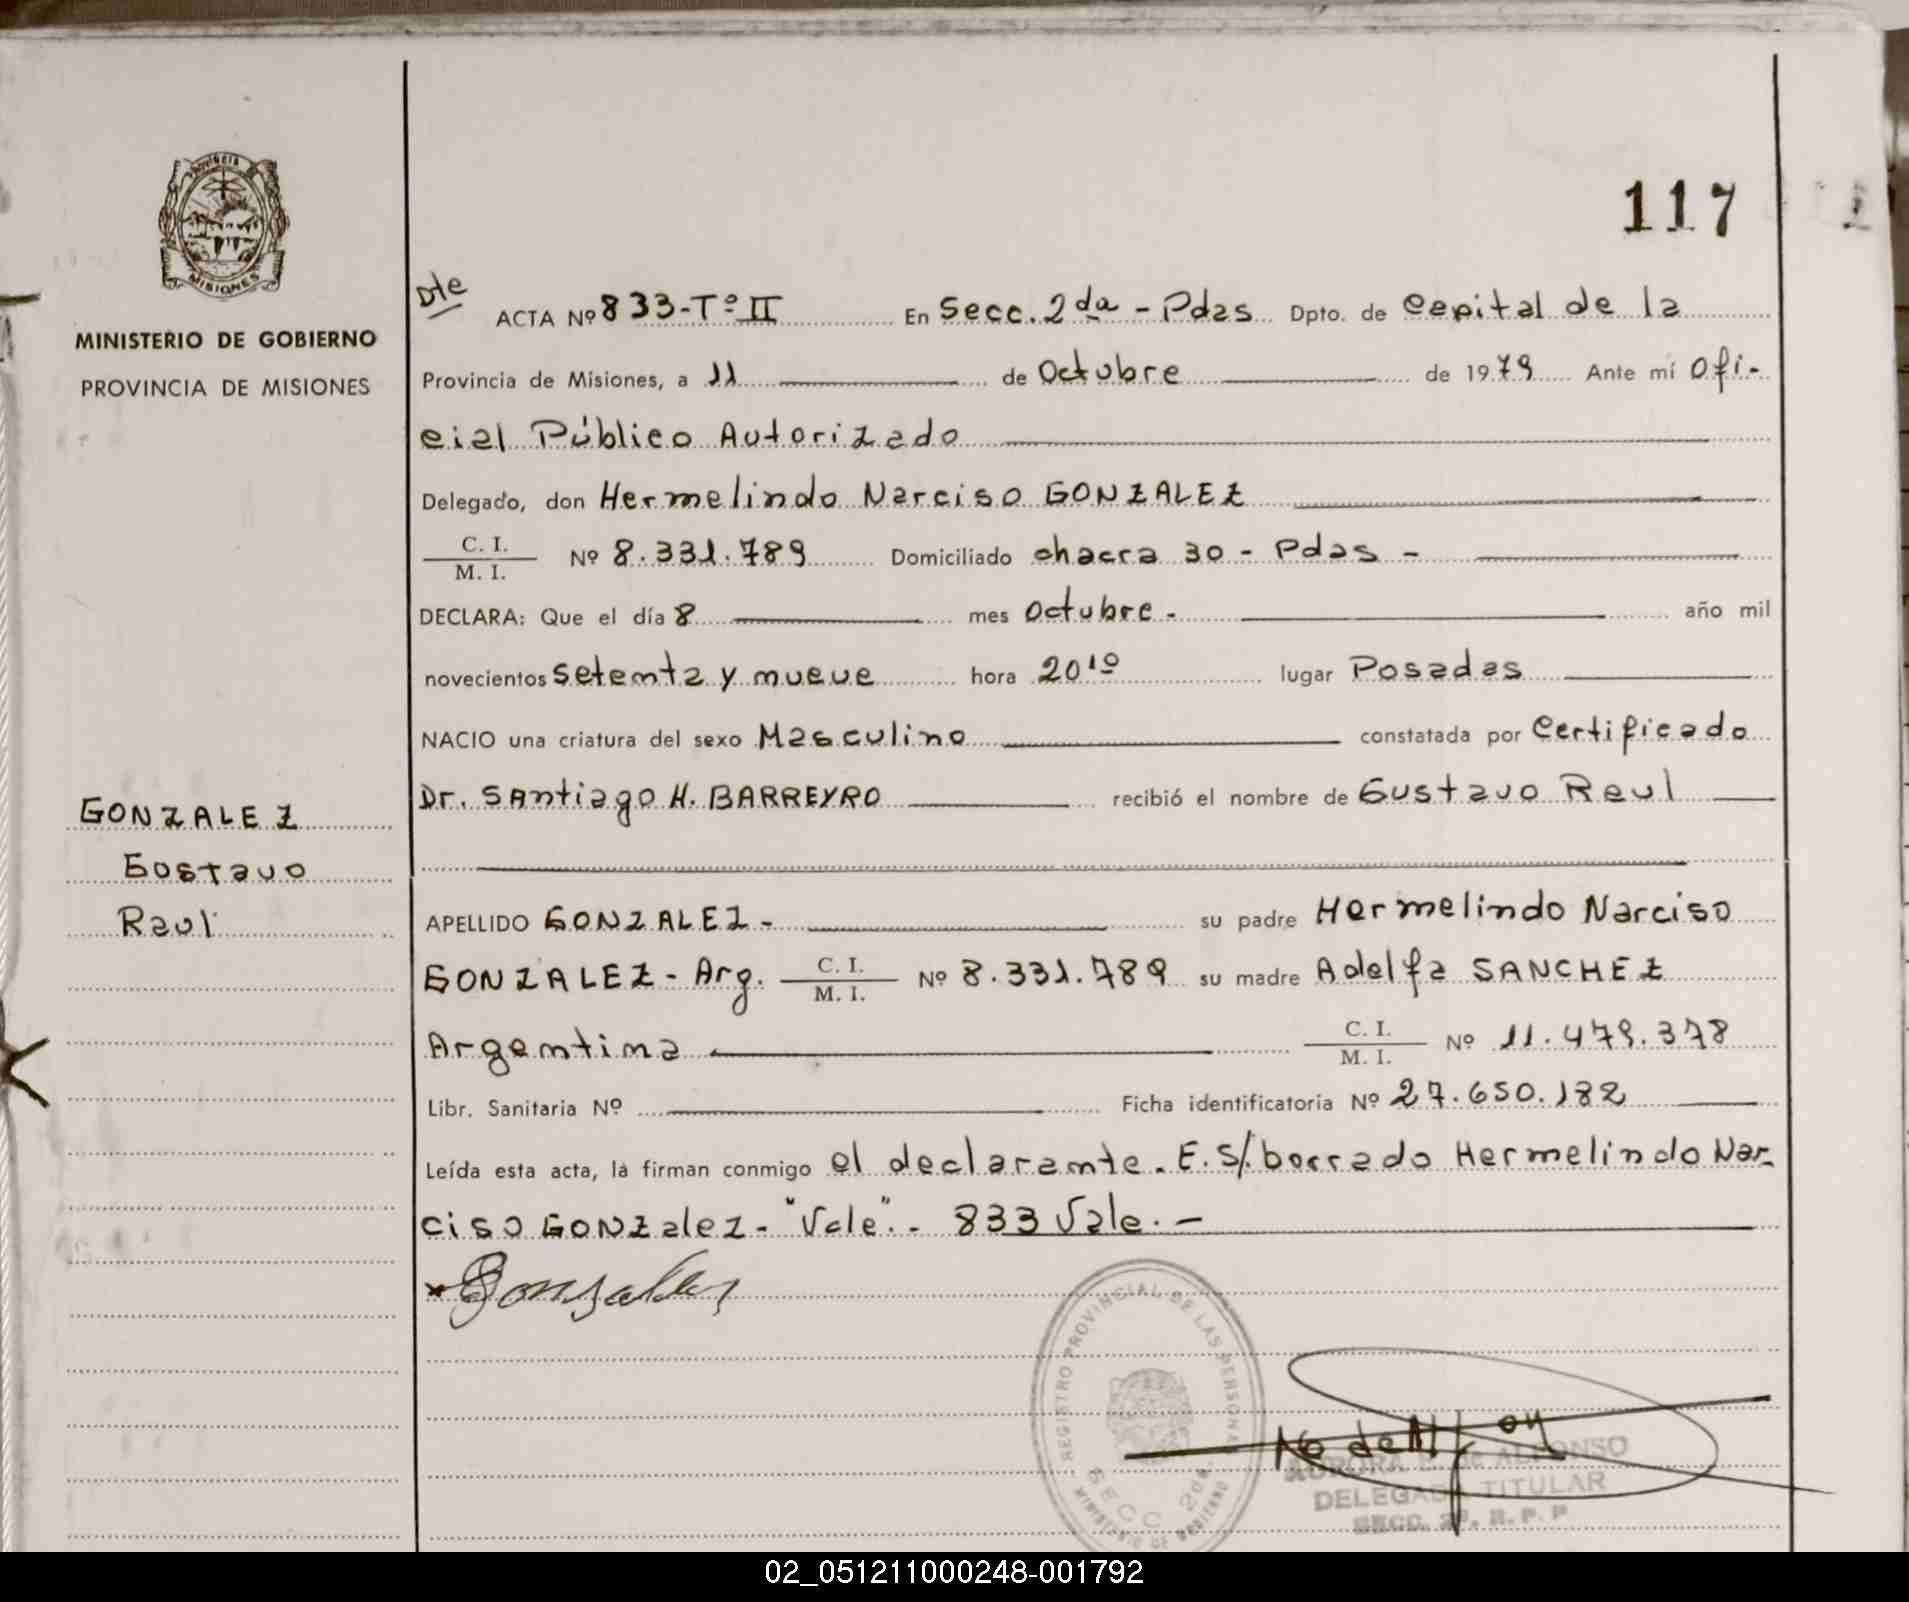 PROVINCIA
MISIONES
MINISTERIO DE GOBIERNO
PROVINCIA DE MISIONES
117
Dte
ACTA Nº 833-Tº II En Secc. 2da - Pdas Dpto. de Capital de la
Provincia de Misiones, a 11 de Octubre de 1979 Ante mí Ofi-
cial Público Autorizado
Delegado, don Hermelindo Narciso GONZALEZ
C. I.
M. I. Nº 8.331.789 Domiciliado chacra 30 - Pdas -
DECLARA: Que el día 8 mes Octubre - año mil
novecientos setenta y nueve hora 20¹⁰ lugar Posadas
NACIO una criatura del sexo Masculino constatada por Certificado
Dr. SAntiago H. BARREYRO recibió el nombre de Gustavo Raul
GONZALEZ
Gustavo
Raul
APELLIDO GONZALEZ - su padre Hermelindo Narciso
GONZALEZ - Arg. C. I.
M. I. Nº 8.331.789 su madre Adelfa SANCHEZ
Argentina C. I.
M. I. Nº 11.479.378
Libr. Sanitaria Nº Ficha identificatoria Nº 27.650.182
Leída esta acta, la firman conmigo el declarante. E. S/. borrado Hermelindo Nar-
ciso GONZalez - "Vale". - 833 Vale. -
Gonzalez
REGISTRO PROVINCIAL DE LAS PERSONAS
SECC 2da.
MINISTERIO DE GOBIERNO
AURORA de ALFONSO
DELEGADA TITULAR
SECC. 2ª. R. P. P
02_051211000248-001792